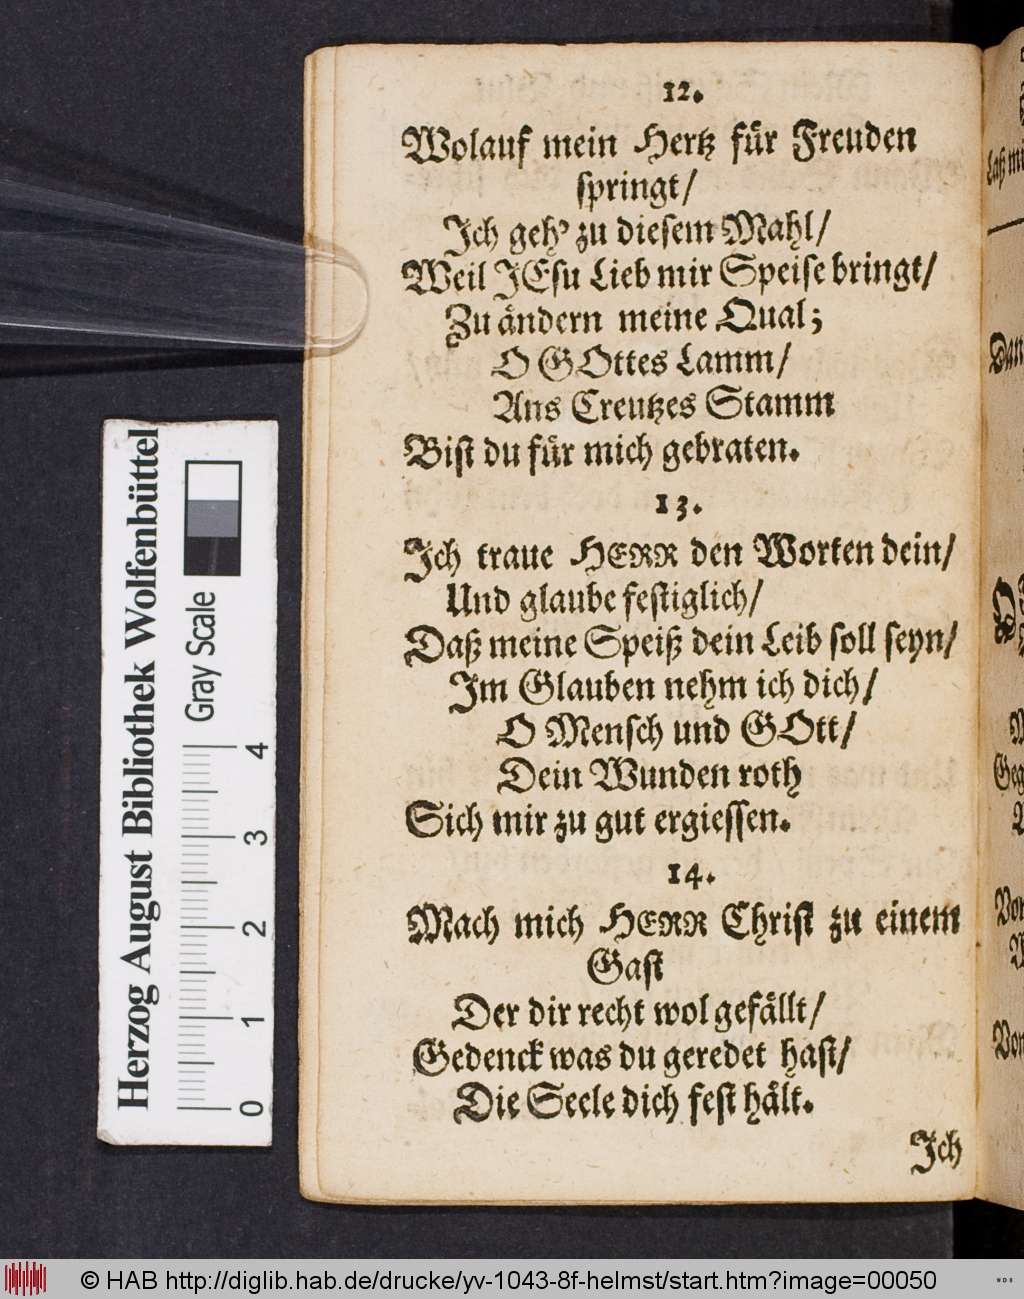 12.
Wolauf mein Hertz für Freuden
springt/
Ich geh' zu diesem Mahl/
Weil JEsu Lieb mir Speise bringt/
Zu ändern meine Qual;
O GOttes Lamm/
Ans Creutzes Stamm
Bist du für mich gebraten.
13.
Ich traue HERR den Worten dein/
Und glaube festiglich/
Daß meine Speiß dein Leib soll seyn/
Im Glauben nehm ich dich/
O Mensch und GOtt/
Dein Wunden roth
Sich mir zu gut ergiessen.
14.
Mach mich HERR Christ zu einem
Gast
Der dir recht wol gefällt/
Gedenck was du geredet hast/
Die Seele dich fest hält.
Ich
Herzog August Bibliothek Wolfenbüttel
Gray Scale
0 1 2 3 4
© HAB http://diglib.hab.de/drucke/yv-1043-8f-helmst/start.htm?image=00050